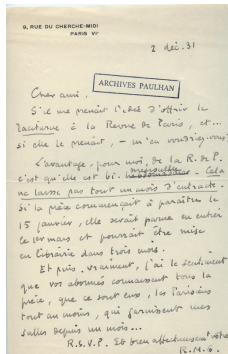 9, RUE DU CHERCHE-MIDI
PARIS VIe
2 déc. 31
ARCHIVES PAULHAN
Cher ami,
S'il me prenait l'idée d'offrir la
Taciturne à la Revue de Paris, et...
si elle le prenait, – m'en voudriez-vous?
L'avantage, pour moi, de la R. de P.
c'est qu'elle est bi-mensuelle. Cela
ne laisse pas tout un mois d'entracte.
Si la pièce commençait à paraître le
15 janvier, elle serait parue en entier
le 1er mars et pourrait être mise
en librairie dans trois mois.
Et puis, vraiment, j'ai le sentiment
que vos abonnés connaissent tous la
pièce, que ce sont eux, les Parisiens
tout au moins, qui garnissent mes
salles depuis un mois...
R.S.V.P. Et bien affectueusement vôtre
R.M.G.